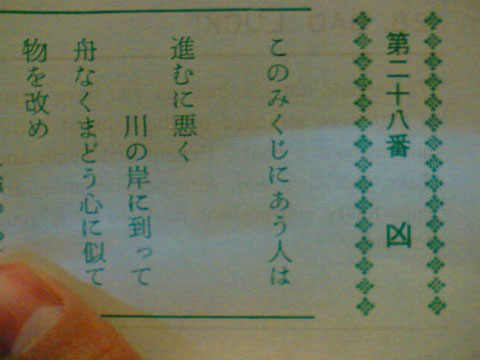 第二十八番 凶
このみくじにあう人は
進むに悪く
川の岸に到って
舟なくまどう心に似て
物を改め